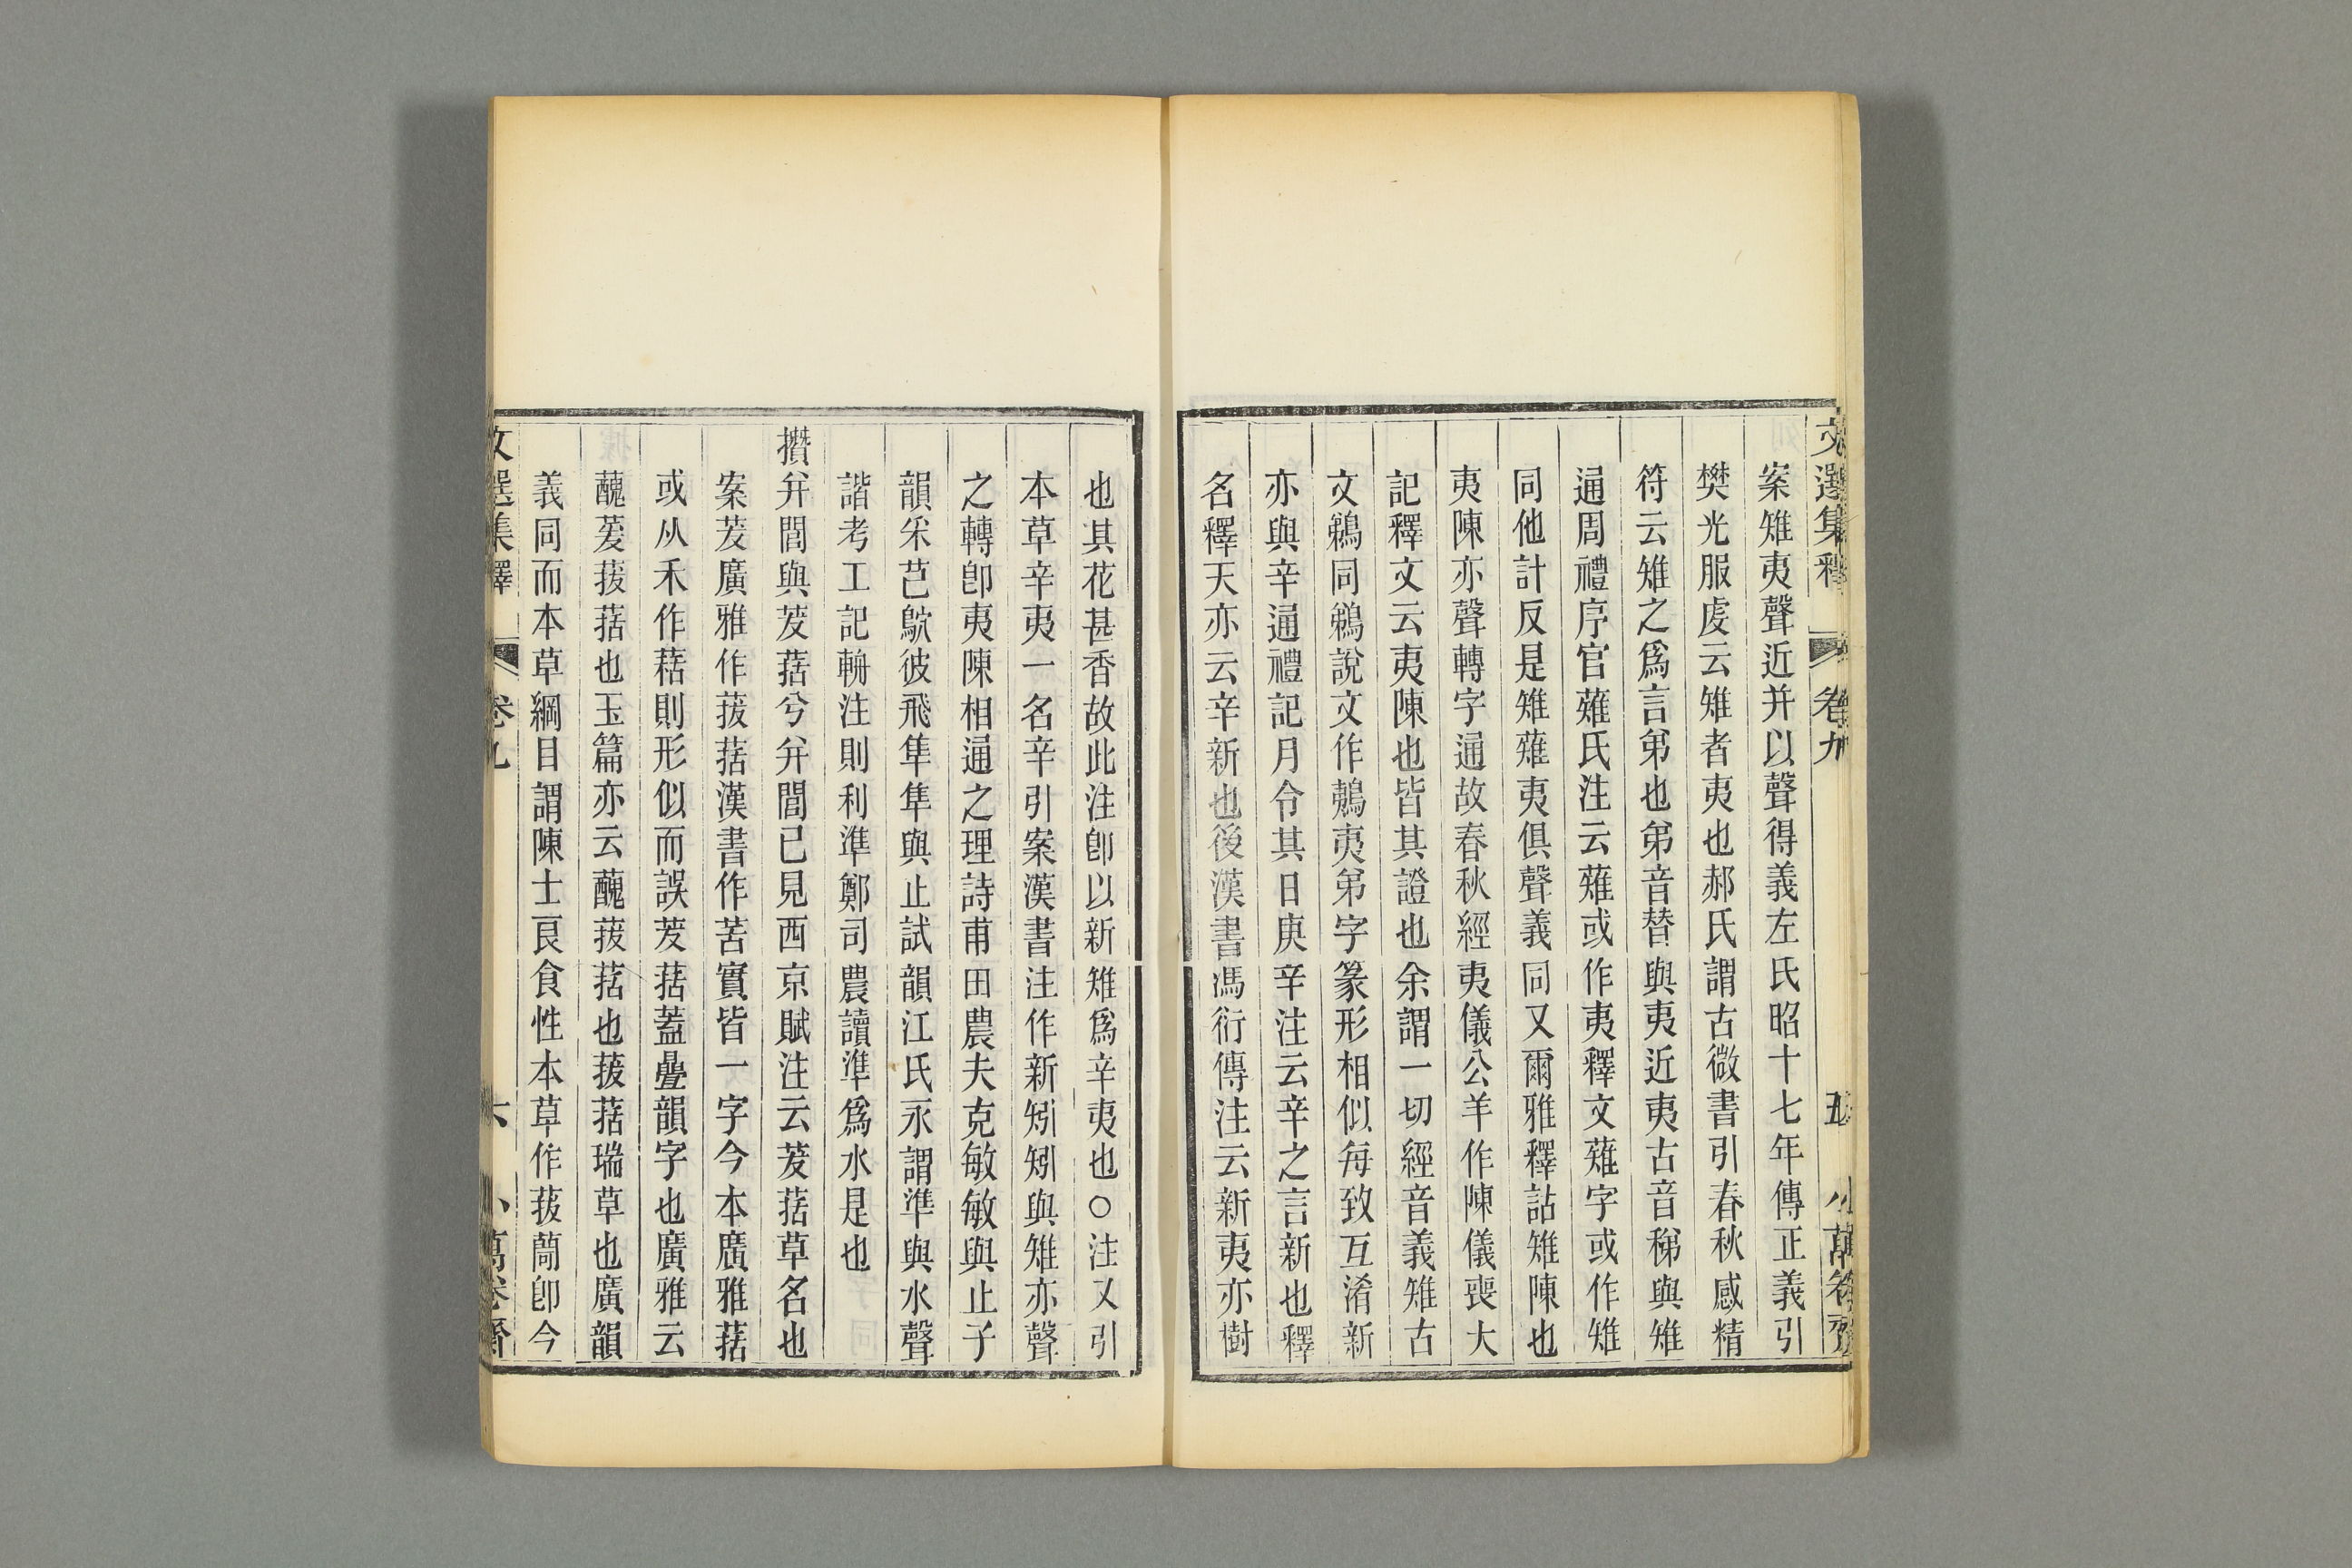 文選集釋 卷九 五 小萬卷齋
案雉夷聲近并以聲得義左氏昭十七年傳正義引
樊光服虔云雉者夷也郝氏謂古微書引春秋感精
符云雉之爲言弟也弟音替與夷近夷古音稊與雉
通周禮序官薙氏注云薙或作夷釋文薙字或作雉
同他計反是雉薙夷俱聲義同又爾雅釋詁雉陳也
夷陳亦聲轉字通故春秋經夷儀公羊作陳儀喪大
記釋文云夷陳也皆其證也余謂一切經音義雉古
文鵜同鵜說文作鶇夷弟字篆形相似每致互淆新
亦與辛通禮記月令其日庚辛注云辛之言新也釋
名釋天亦云辛新也後漢書馮衍傳注云新夷亦樹
也其花甚香故此注卽以新雉爲辛夷也○注又引
本草辛夷一名辛引案漢書注作新矧矧與雉亦聲
之轉卽夷陳相通之理詩甫田農夫克敏敏與止子
韻采芑鴥彼飛隼隼與止試韻江氏永謂準與水聲
諧考工記輈注則利準鄭司農讀準爲水是也
攢幷閭與茇葀兮幷閭已見西京賦注云茇葀草名也
案茇廣雅作菝葀漢書作苦實皆一字今本廣雅葀
或从禾作𦼮則形似而誤茇葀蓋疊韻字也廣雅云
醜茇菝葀也玉篇亦云醜菝葀也菝葀瑞草也廣韻
義同而本草綱目謂陳士良食性本草作菝䕲卽今
文選集釋 卷九 六 小萬卷齋